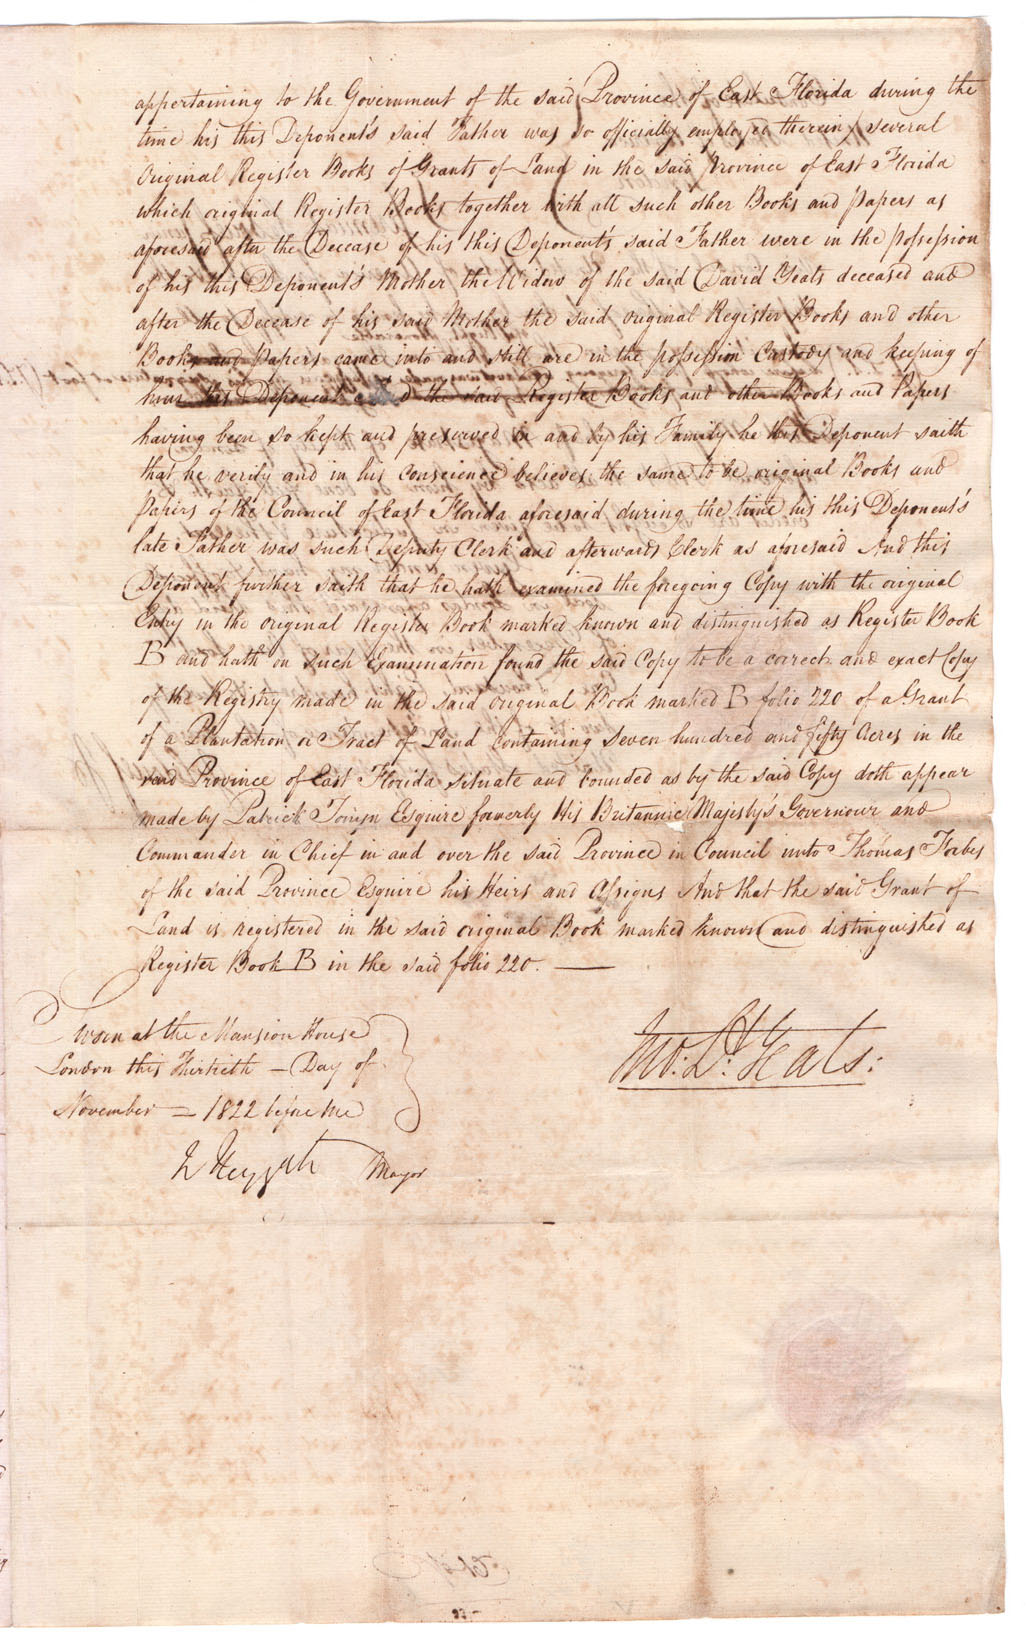 appertaining to the Government of the said Province of East Florida during the
time his this Deponent's said Father was so officially employed therein several
Original Register Books of Grants of Land in the said province of East Florida
which original Register Books together with all such other Books and papers as
aforesaid after the Decease of his this Deponent's said Father were in the possession
of his this Deponent's Mother the Widow of the said David Yeats deceased and
after the Decease of his said Mother the said original Register Books and other
Books and papers came into and still are in the possession Custody and keeping of
him this Deponent and the said Register Books and other Books and Papers
having been so kept and preserved in and by his Family he this Deponent saith
that he verily and in his conscience believes the same to be original Books and
papers of the Council of East Florida aforesaid during the time his this Deponent's
late Father was such Deputy Clerk and afterwards Clerk as aforesaid And this
Deponent further saith that he hath examined the foregoing Copy with the original
Entry in the original Register Book marked known and distinguished as Register Book
B and hath on such Examination found the said Copy to be a correct and exact Copy
of the Registry made in the said original Book marked B folio 220 of a Grant
of a Plantation or Tract of Land containing Seven hundred and fifty Acres in the
said Province of East Florida situate and bounded as by the said Copy doth appear
made by Patrick Tonyn Esquire formerly His Britannic Majesty's Governour and
Commander in Chief in and over the said Province in Council unto Thomas Forbes
of the said Province Esquire his Heirs and Assigns And that the said Grant of
Land is registered in the said original Book marked known and distinguished as
Register Book B in the said folio 220.
Sworn at the Mansion House
London this Thirtieth – Day of
November – 1822 before me
Jno: Dd: Yeats:
W Heygate Mayor